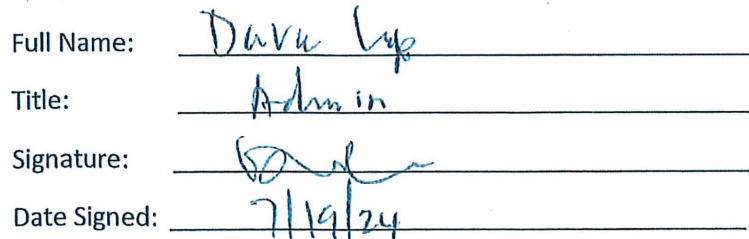 Full Name: Dava
Title: Admin
Signature:
Date Signed: 7/19/24